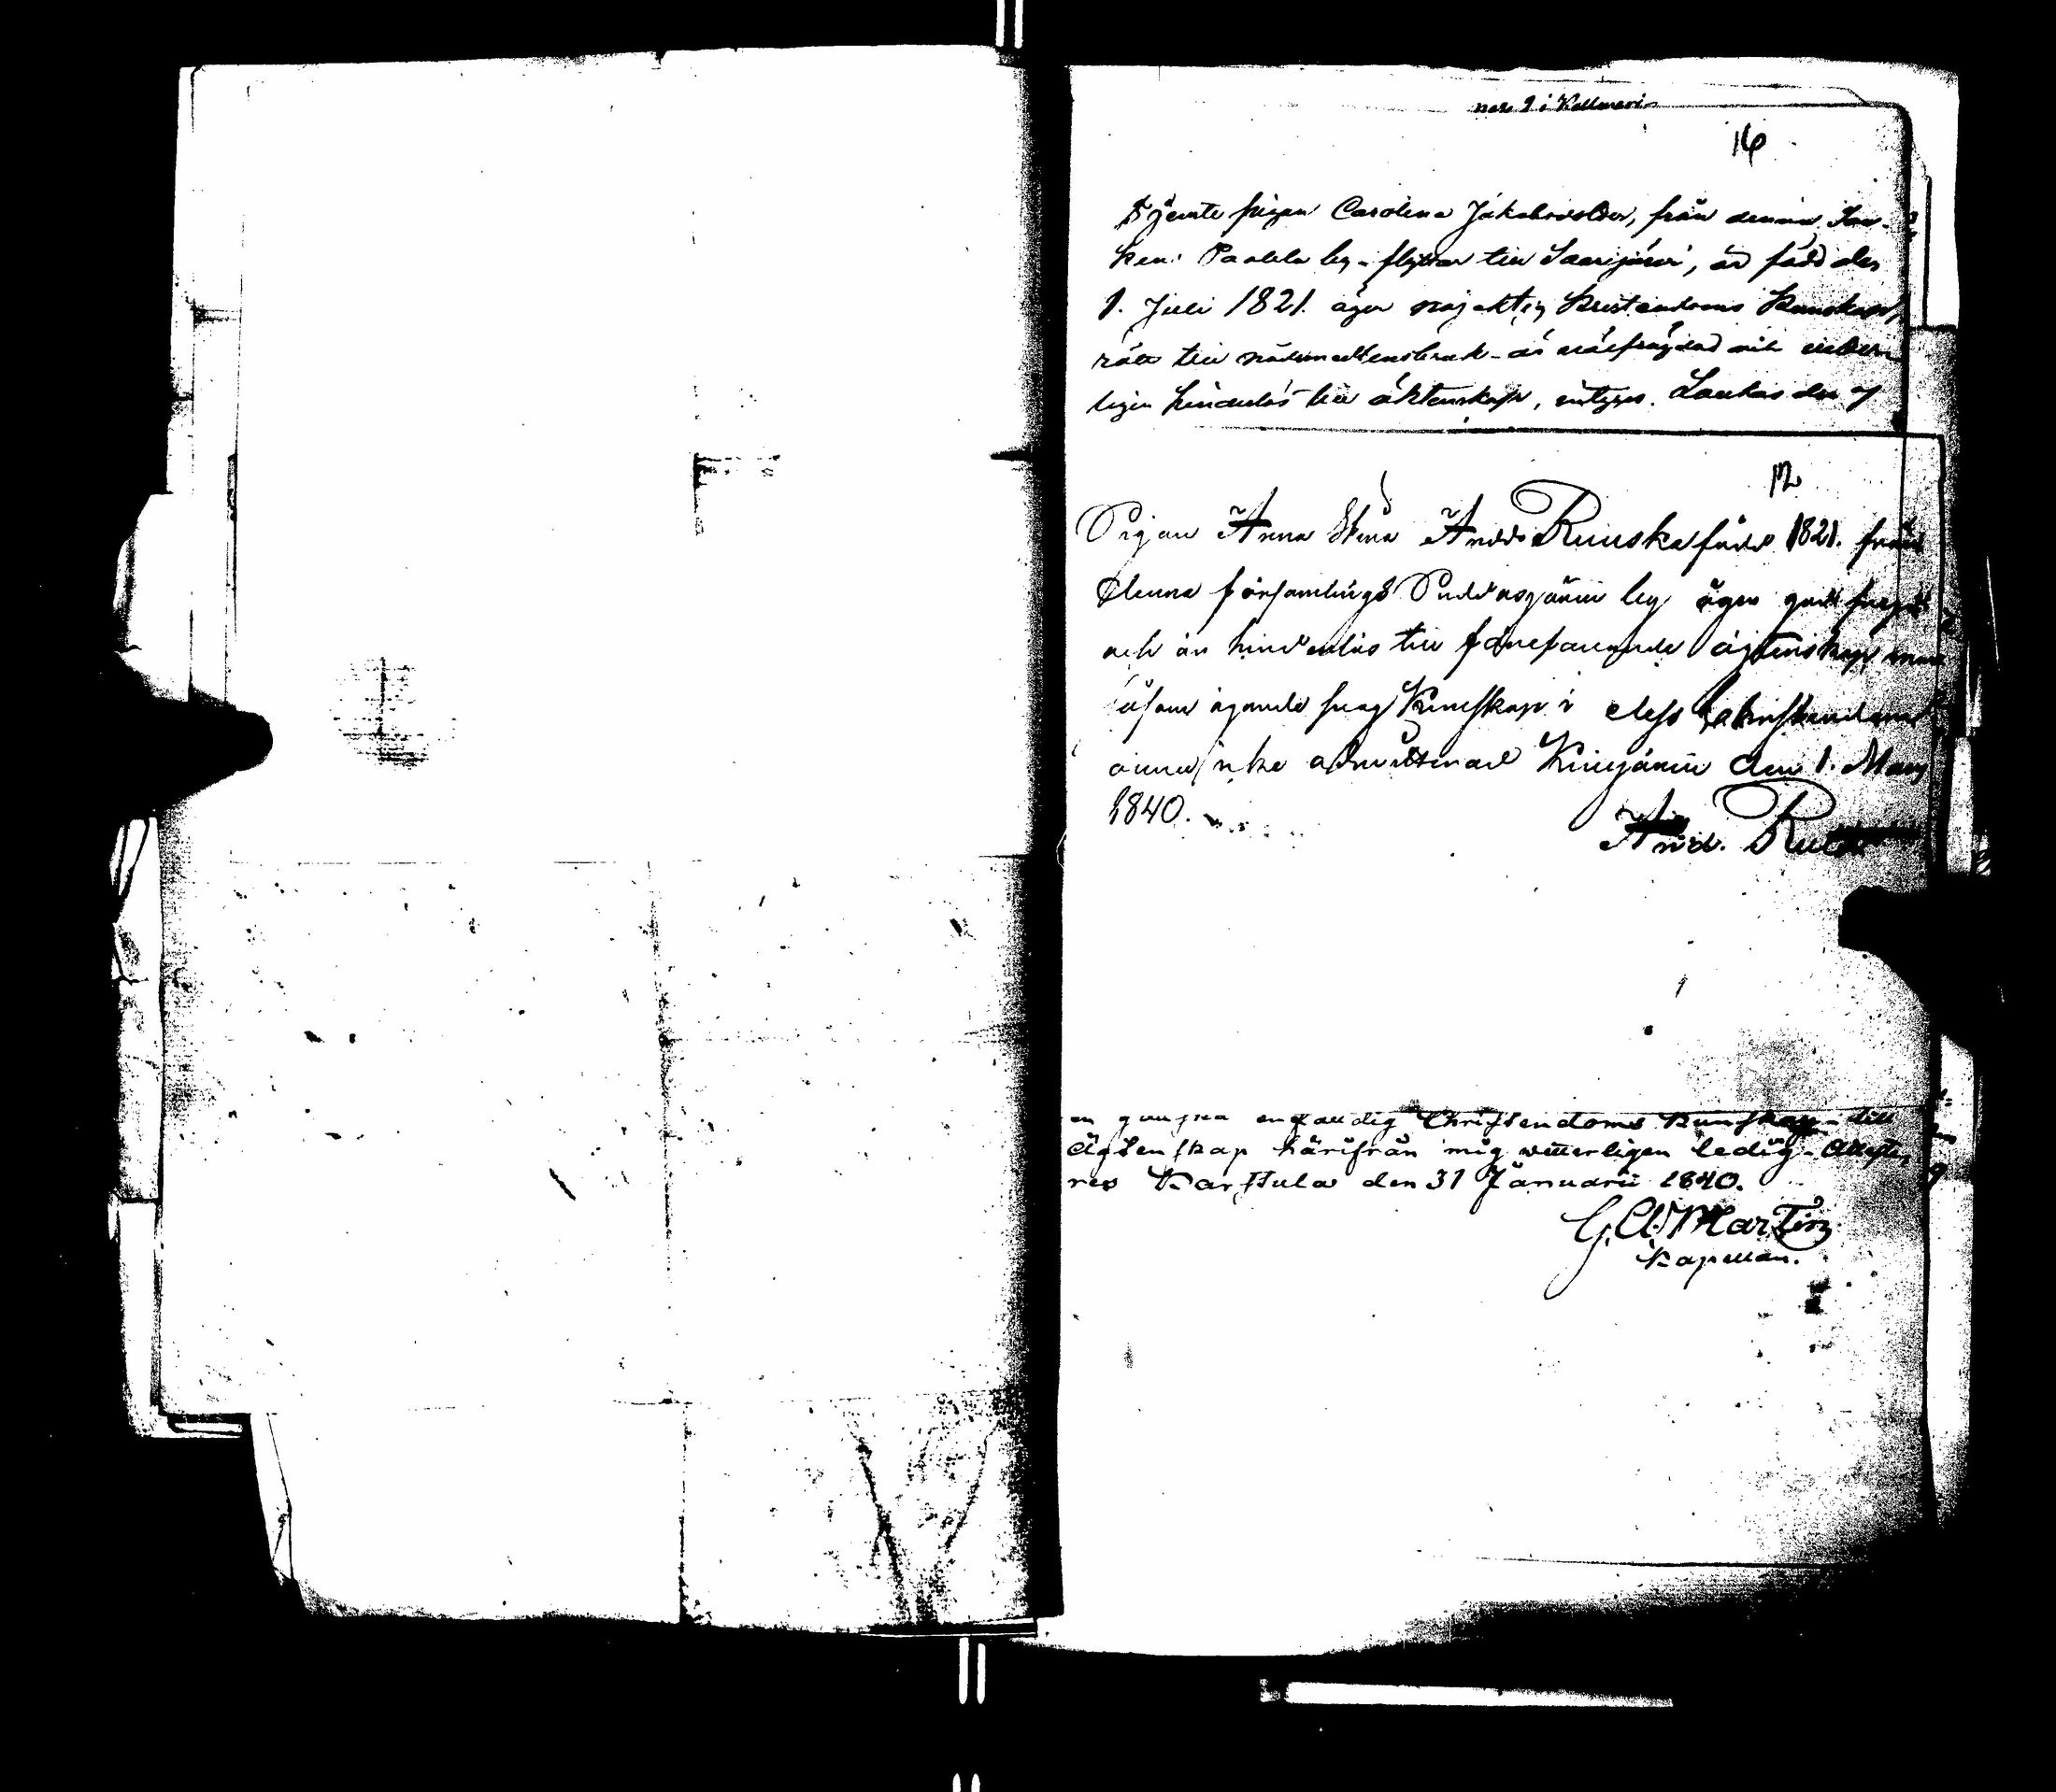 16
Tjenste pigan Carolina Jakobsdotter, från denna Soc-
ken: Paalala by - flyttar till Saarijärvi, är född den
1. Juli 1821. äger nöjaktig kristendoms kunskap,
rätt till nådemedlens bruk - är och
ligen hinderlös till äktenskap, intygas. Laukas den 7
12
Pigan Anna Stina Andsd Ruuska född 1821. från
denna församlings Pudasjärvi by äger godt
och är hinderlös till förefarande ägtenskap men
såsom ägande svag Kunskap i dess
ännu icke admitterad Kivijärvi den 1. Mars
1840.
And.
en ganska enfaldig Christendoms kunskap - till
ägtenskap härifrån mig vetterligen ledig - Atteste-
res Karstula den 31 Januarii 1840.
G. A. Martin
Kapellan.